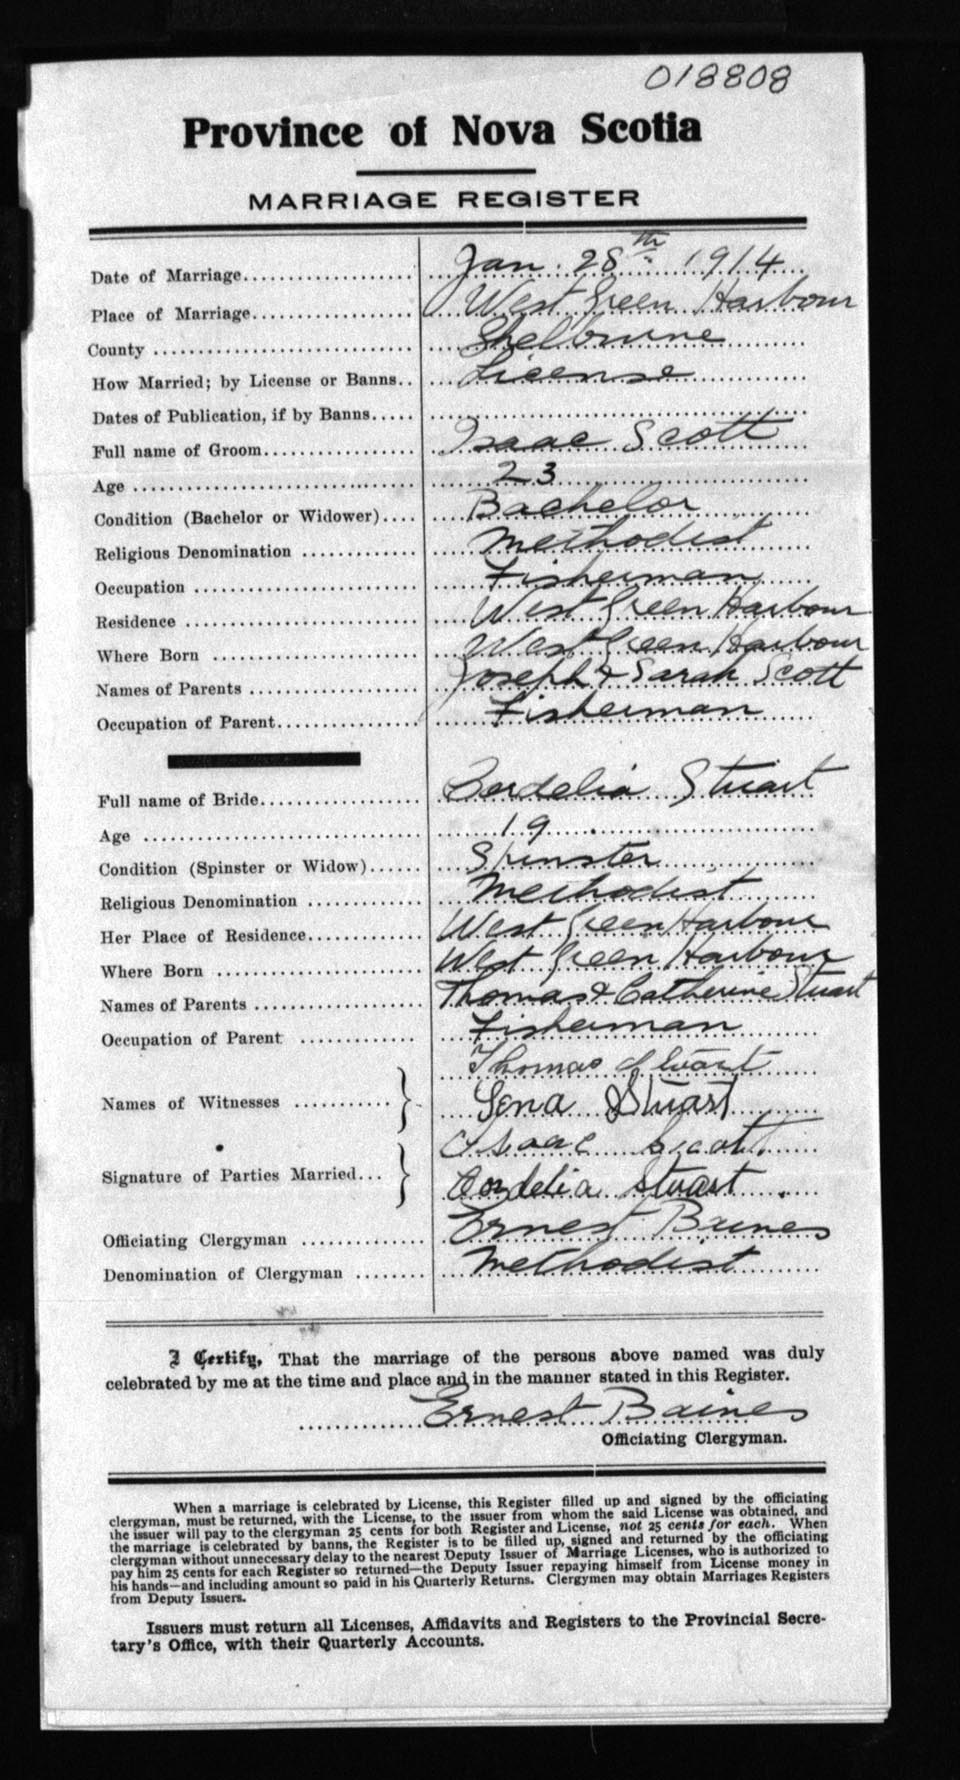 018808
Province of Nova Scotia
MARRIAGE REGISTER
Date of Marriage.................... Jan. 28th 1914
Place of Marriage.................... West Green Harbour
County .................... Shelburne
How Married; by License or Banns.. License
Dates of Publication, if by Banns.....
Full name of Groom.................... Isaac Scott
Age .................... 23
Condition (Bachelor or Widower).... Bachelor
Religious Denomination .................... Methodist
Occupation .................... Fisherman
Residence .................... West Green Harbour
Where Born .................... West Green Harbour
Names of Parents .................... Joseph & Sarah Scott
Occupation of Parent.................... Fisherman
Full name of Bride.................... Cordelia Stuart
Age .................... 19
Condition (Spinster or Widow)...... Spinster
Religious Denomination .................... Methodist
Her Place of Residence............ West Green Harbour
Where Born .................... West Green Harbour
Names of Parents .................... Thomas & Catherine Stuart
Occupation of Parent .............. Fisherman
Thomas Stuart
Names of Witnesses ........... Lena Stuart
Isaac Scott
Signature of Parties Married... Cordelia Stuart
Officiating Clergyman .............. Ernest Baines
Denomination of Clergyman ........ Methodist
I Certify, That the marriage of the persons above named was duly
celebrated by me at the time and place and in the manner stated in this Register.
Ernest Baines
Officiating Clergyman.
When a marriage is celebrated by License, this Register filled up and signed by the officiating
clergyman, must be returned, with the License, to the issuer from whom the said License was obtained, and
the issuer will pay to the clergyman 25 cents for both Register and License, not 25 cents for each. When
the marriage is celebrated by banns, the Register is to be filled up, signed and returned by the officiating
clergyman without unnecessary delay to the nearest Deputy Issuer of Marriage Licenses, who is authorized to
pay him 25 cents for each Register so returned—the Deputy Issuer repaying himself from License money in
his hands—and including amount so paid in his Quarterly Returns. Clergymen may obtain Marriages Registers
from Deputy Issuers.
Issuers must return all Licenses, Affidavits and Registers to the Provincial Secre-
tary's Office, with their Quarterly Accounts.